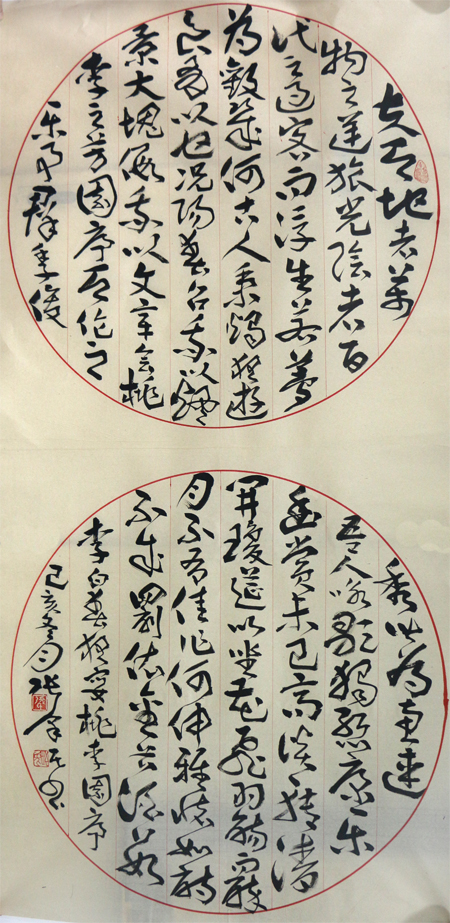 夫天地者萬
物之逆旅光陰者百
代之過客而浮生若夢
為歡幾何古人秉燭夜遊
良有以也況陽春召我以煙
景大塊假我以文章會桃
李之芳園序天倫之
乐事群季俊
秀皆為惠連
吾人詠歌獨慚康乐
幽賞未已高談轉清
開瓊筵以坐花飛羽觴而醉
月不有佳作何伸雅懷如詩
不成罰依金谷酒數
李白春夜宴桃李園序
己亥冬月